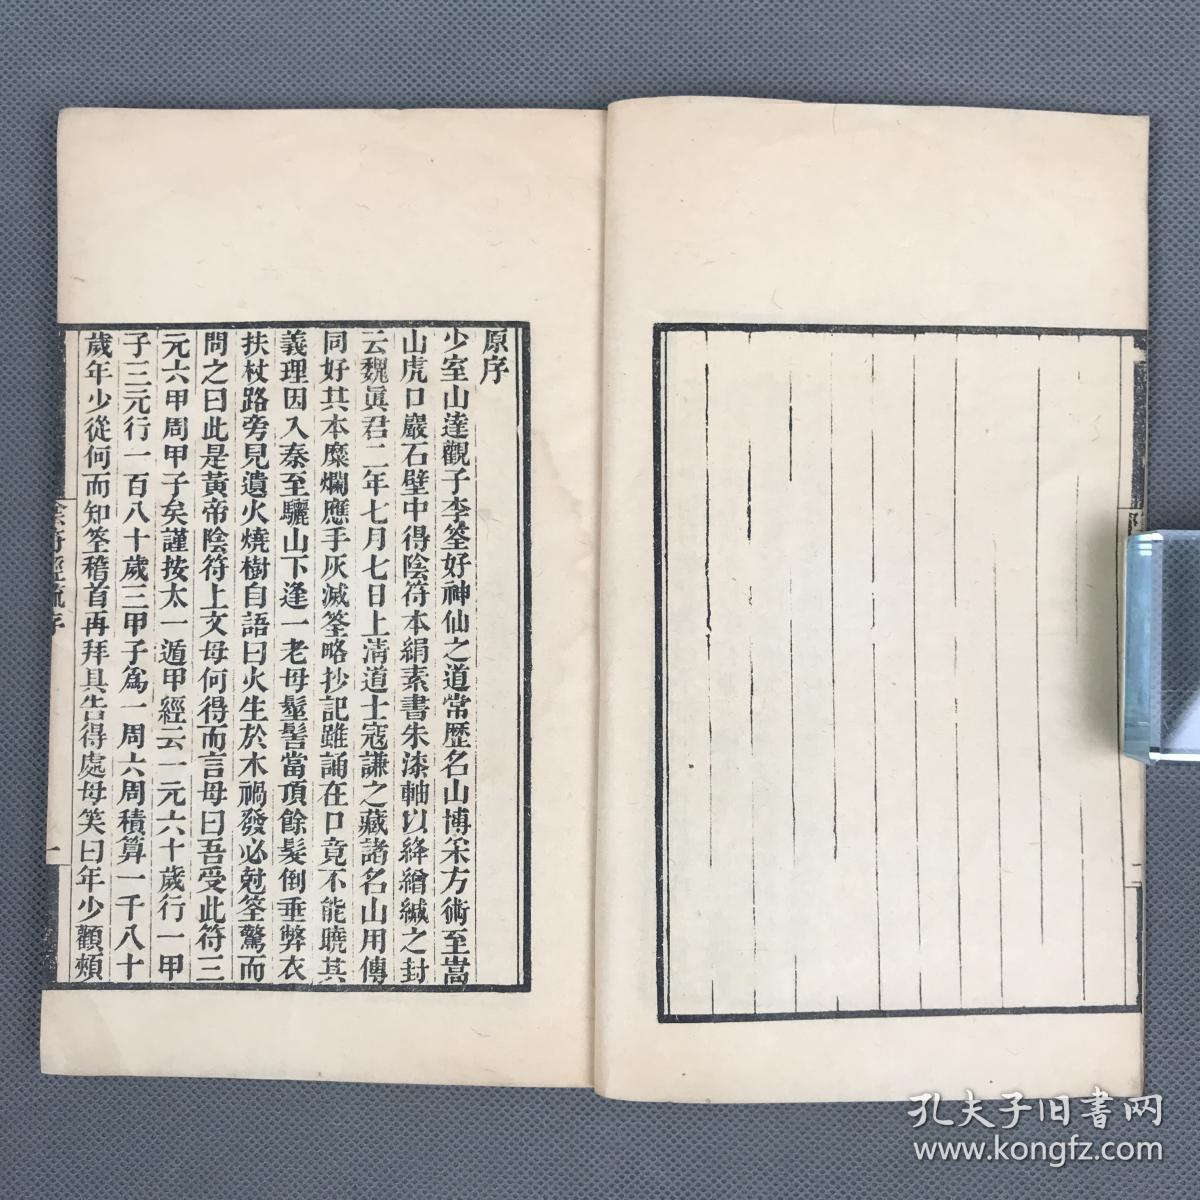 原序
少室山達觀子李筌好神仙之道常歷名山博采方術至嵩
山虎口巖石壁中得陰符本絹素書朱漆軸以絳繒緘之封
云魏眞君二年七月七日上清道士寇謙之藏諸名山用傳
同好其本糜爛應手灰滅筌略抄記雖誦在口竟不能曉其
義理因入秦至驪山下逢一老母髽髻當頂餘髮倒垂弊衣
扶杖路旁見遺火燒樹自語曰火生於木禍發必尅筌驚而
問之曰此是黃帝陰符上文母何得而言母曰吾受此符三
元六甲周甲子矣謹按太一遁甲經云一元六十歲行一甲
子三元行一百八十歲三甲子爲一周六周積算一千八十
歲年少從何而知筌稽首再拜具告得處母笑曰年少顴頰
陰符經疏序
一
孔夫子旧書网
www.kongfz.com